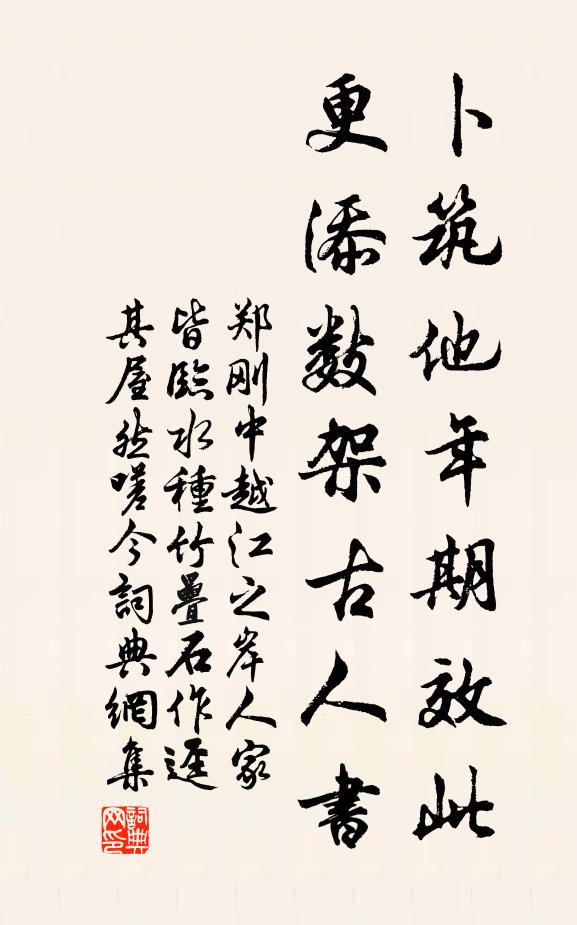 卜筑他年期效此
更添数架古人書
郑刚中越江之岸人家
皆臨水種竹疊石作逕
其屋然嗟今詞典網集
詞典网印